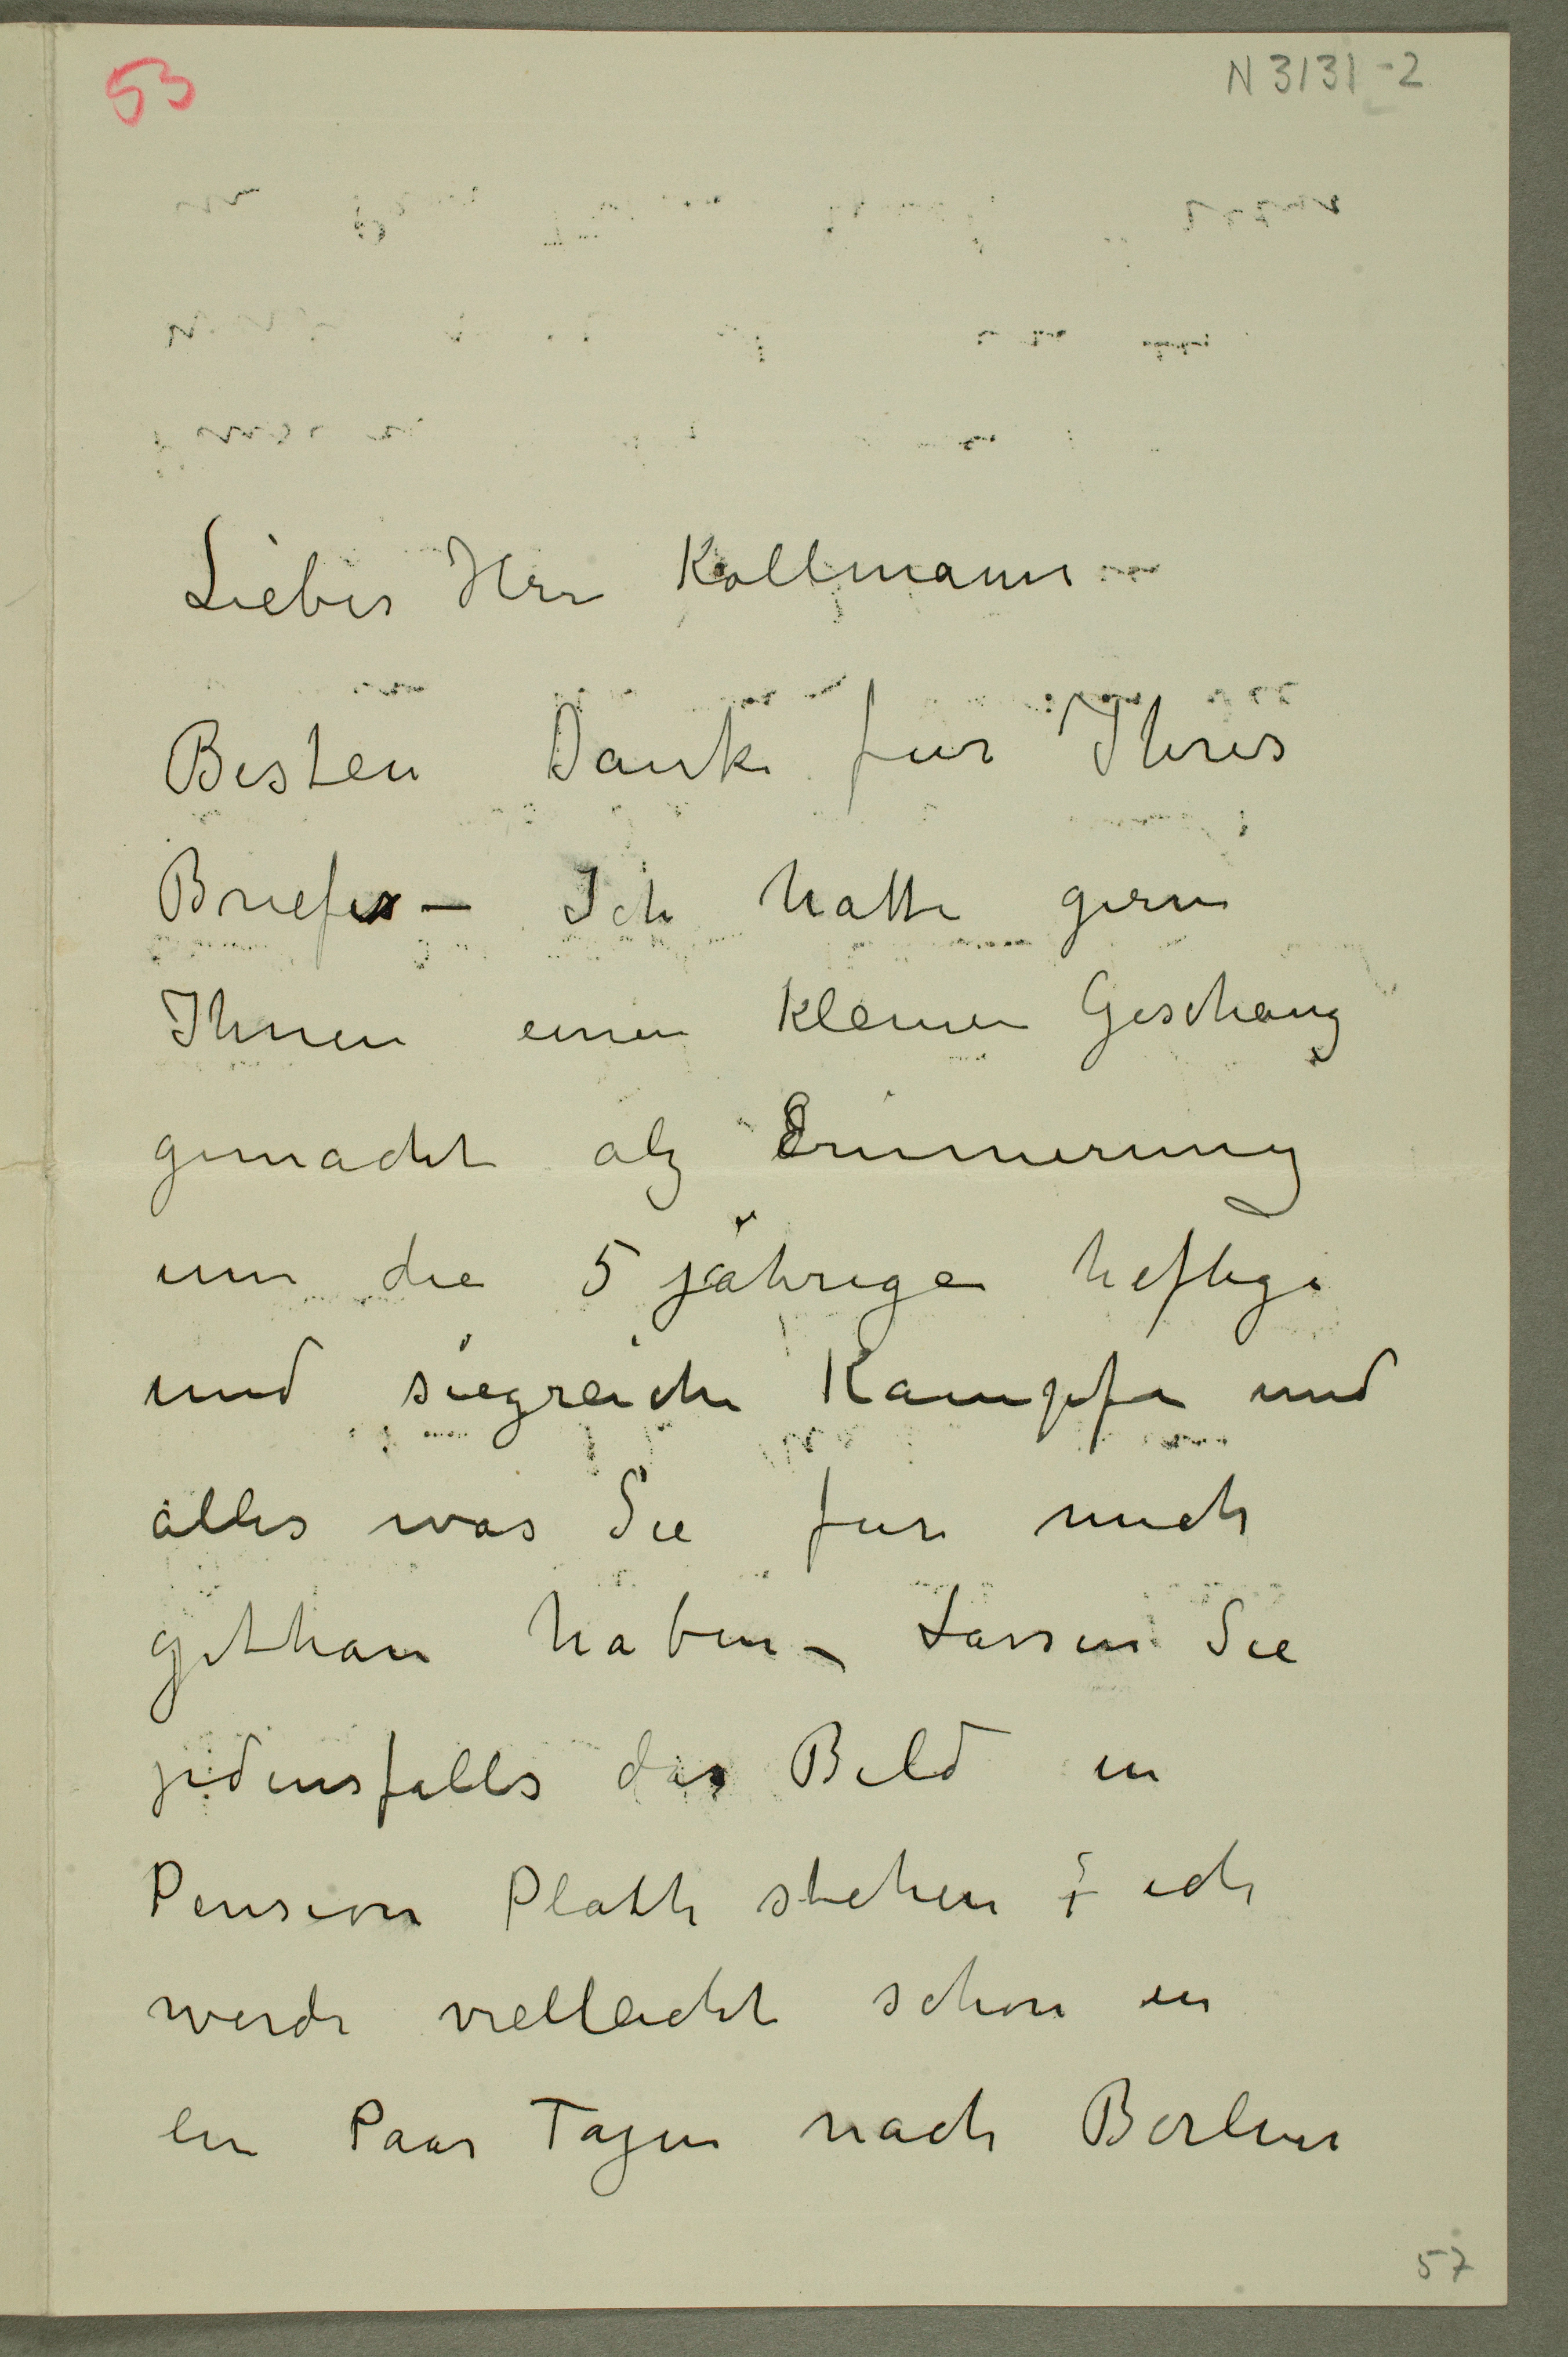 53
N 3131-2
Lieber Herr Kollmann
Besten Dank für Ihres
Briefes – Ich hatte gern
Ihnen einen kleinen Geschang
gemacht alz Erinnerung
um die 5 jährige heftige
und siegreiche Kampfe und
alles was Sie fur mich
gethan haben – Lassen Sie
jedensfalls das Bild in
Pension Plath stehen ich
werde vielleicht schon in
ein Paar Tagen nach Berlin
57